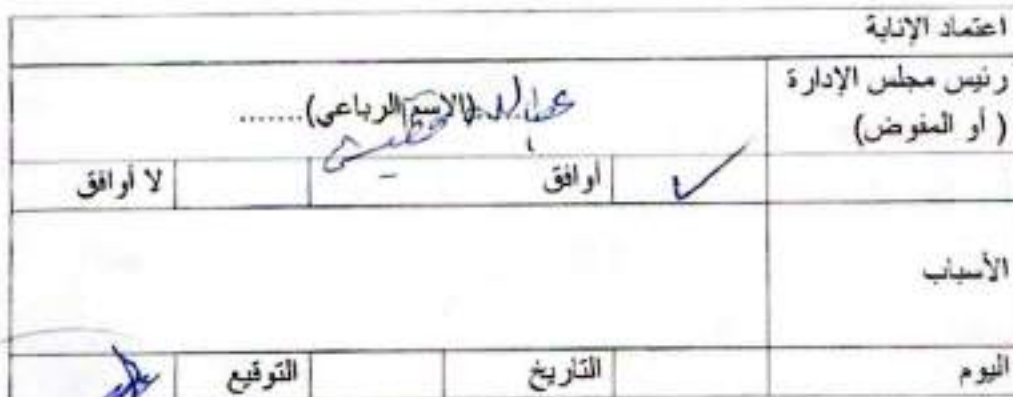 اعتماد الإنابة
رئيس مجلس الإدارة
( أو المفوض)
(الاسم الرباعي).......
✓ أوافق لا أوافق
الأسباب
اليوم التاريخ التوقيع